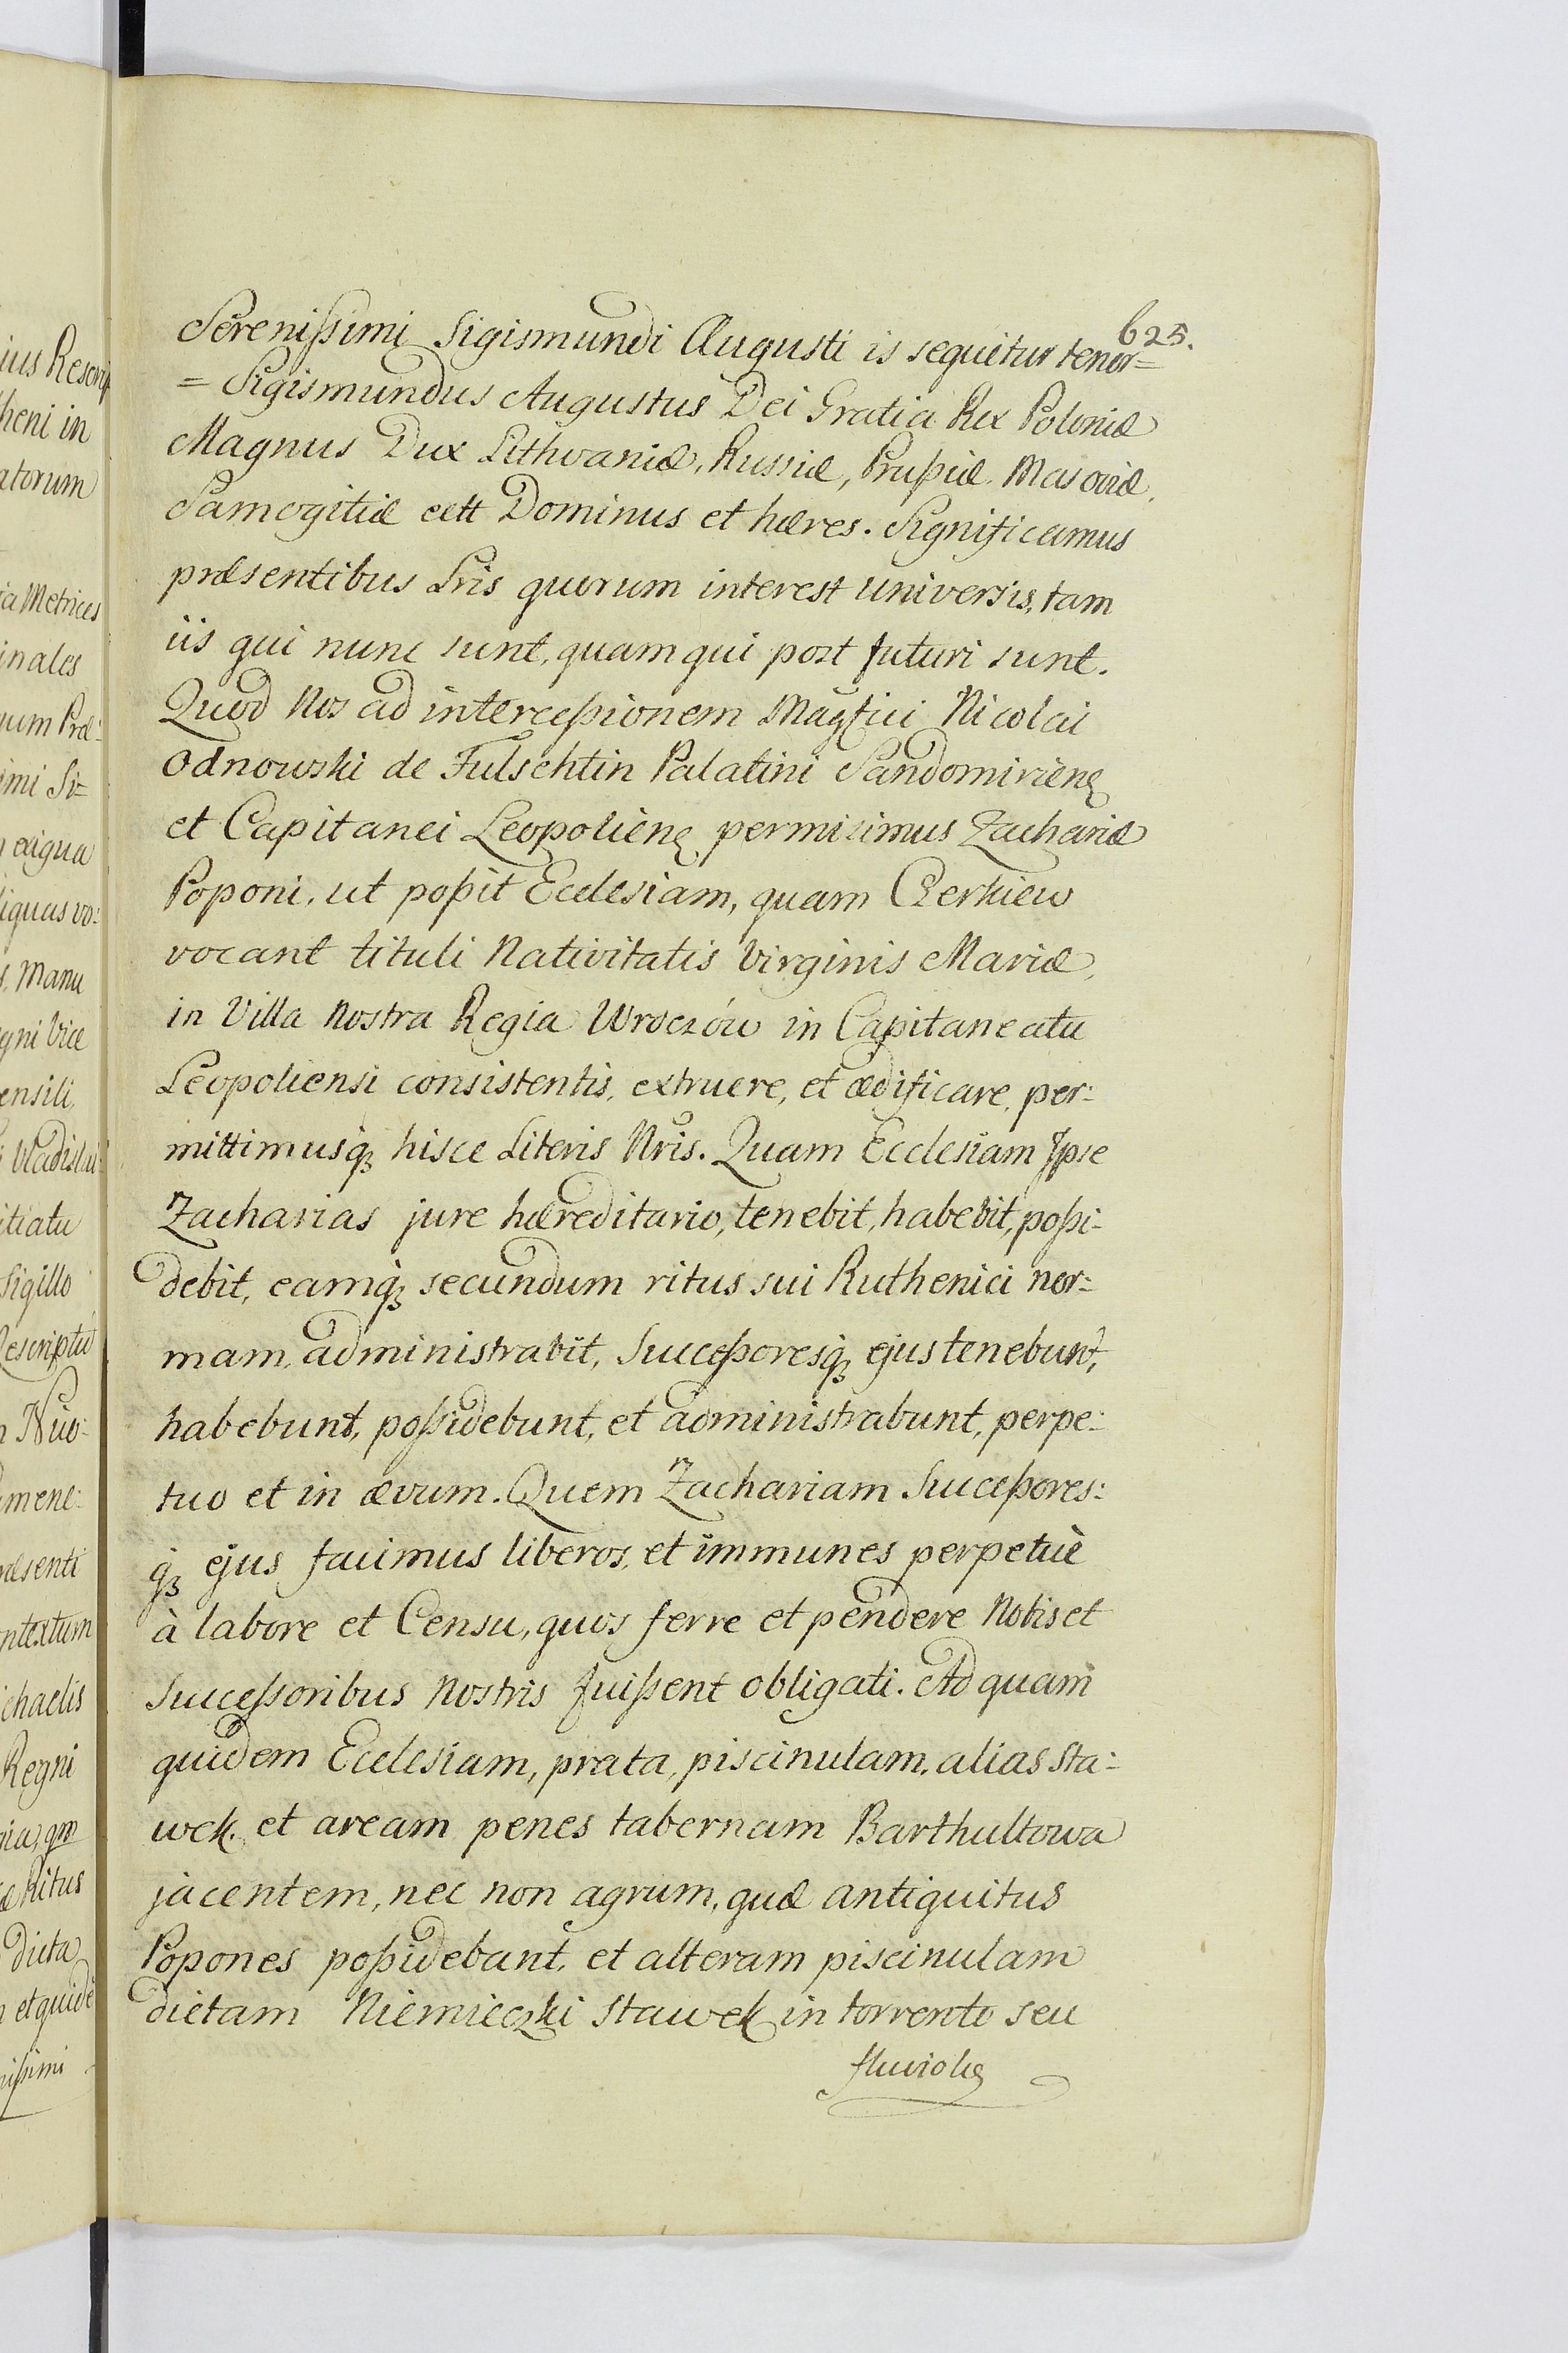 625.
Serenissimi Sigismundi Augusti is sequitur tenor=
= Sigismundus Augustus Dei Gratia Rex Poloniæ
Magnus Dux Lithvaniæ, Russiæ, Prußiæ, Masoviæ,
Samogitiæ cett Dominus et hæres. Significamus
præsentibus Lris quorum interest universis, tam
iis qui nunc sunt, quam qui post futuri sunt.
Quod Nos ad interceßionem Magfici Nicolai
Odnowski de Fulschtin Palatini Sandomirienꝫ
et Capitanei Leopolienꝫ permisimus Zachariæ
Poponi, ut poßit Ecclesiam, quam Cerkiew
vocant tituli Nativitatis Virginis Mariæ,
in Villa Nostra Regia Wroczów in Capitaneatu
Leopoliensi consistentis, extruere, et ædificare, per:
mittimusqꝫ hisce Literis Nris. Quam Ecclesiam Jpse
Zacharias jure hæreditario, tenebit, habebit, poßi:
debit, eamqꝫ secundum ritus sui Ruthenici nor:
mam, administrabit, Succeßoresqꝫ ejus tenebunt,
habebunt, poßidebunt, et administrabunt, perpe:
tuo et in ævum. Quem Zachariam Succeßores:
qꝫ ejus facimus liberos, et immunes perpetuè
à labore et Censu, quos ferre et pendere Nobis et
Successoribus Nostris fuißent obligati. Ad quam
quidem Ecclesiam, prata, piscinulam, alias Sta:
wek. et aream penes tabernam Barthultowa
jacentem, nec non agrum, quæ antiquitus
Popones poßidebant, et alteram piscinulam
dictam Niemieczki Stawek in torrento seu